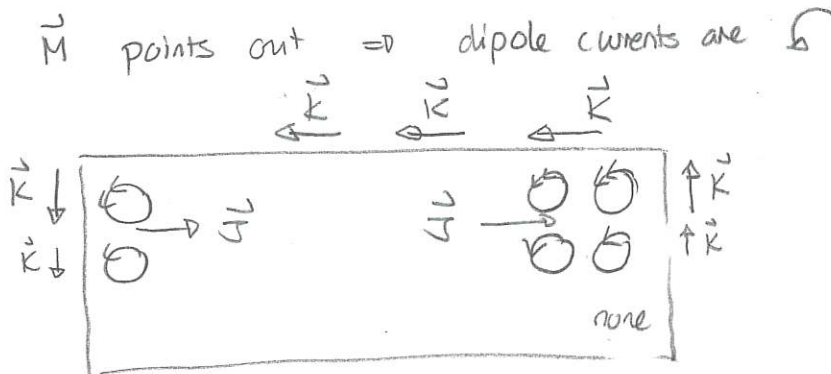 M⃗ points out ⇒ dipole currents are ↺
K⃗ K⃗ K⃗
K⃗ J⃗ J⃗ K⃗
K⃗ K⃗
none